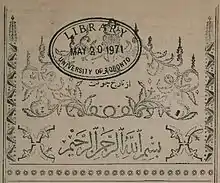 LIBRARY
MAY 20 1971
UNIVERSITY OF TORONTO
بسم الله الرحمن الرحيم